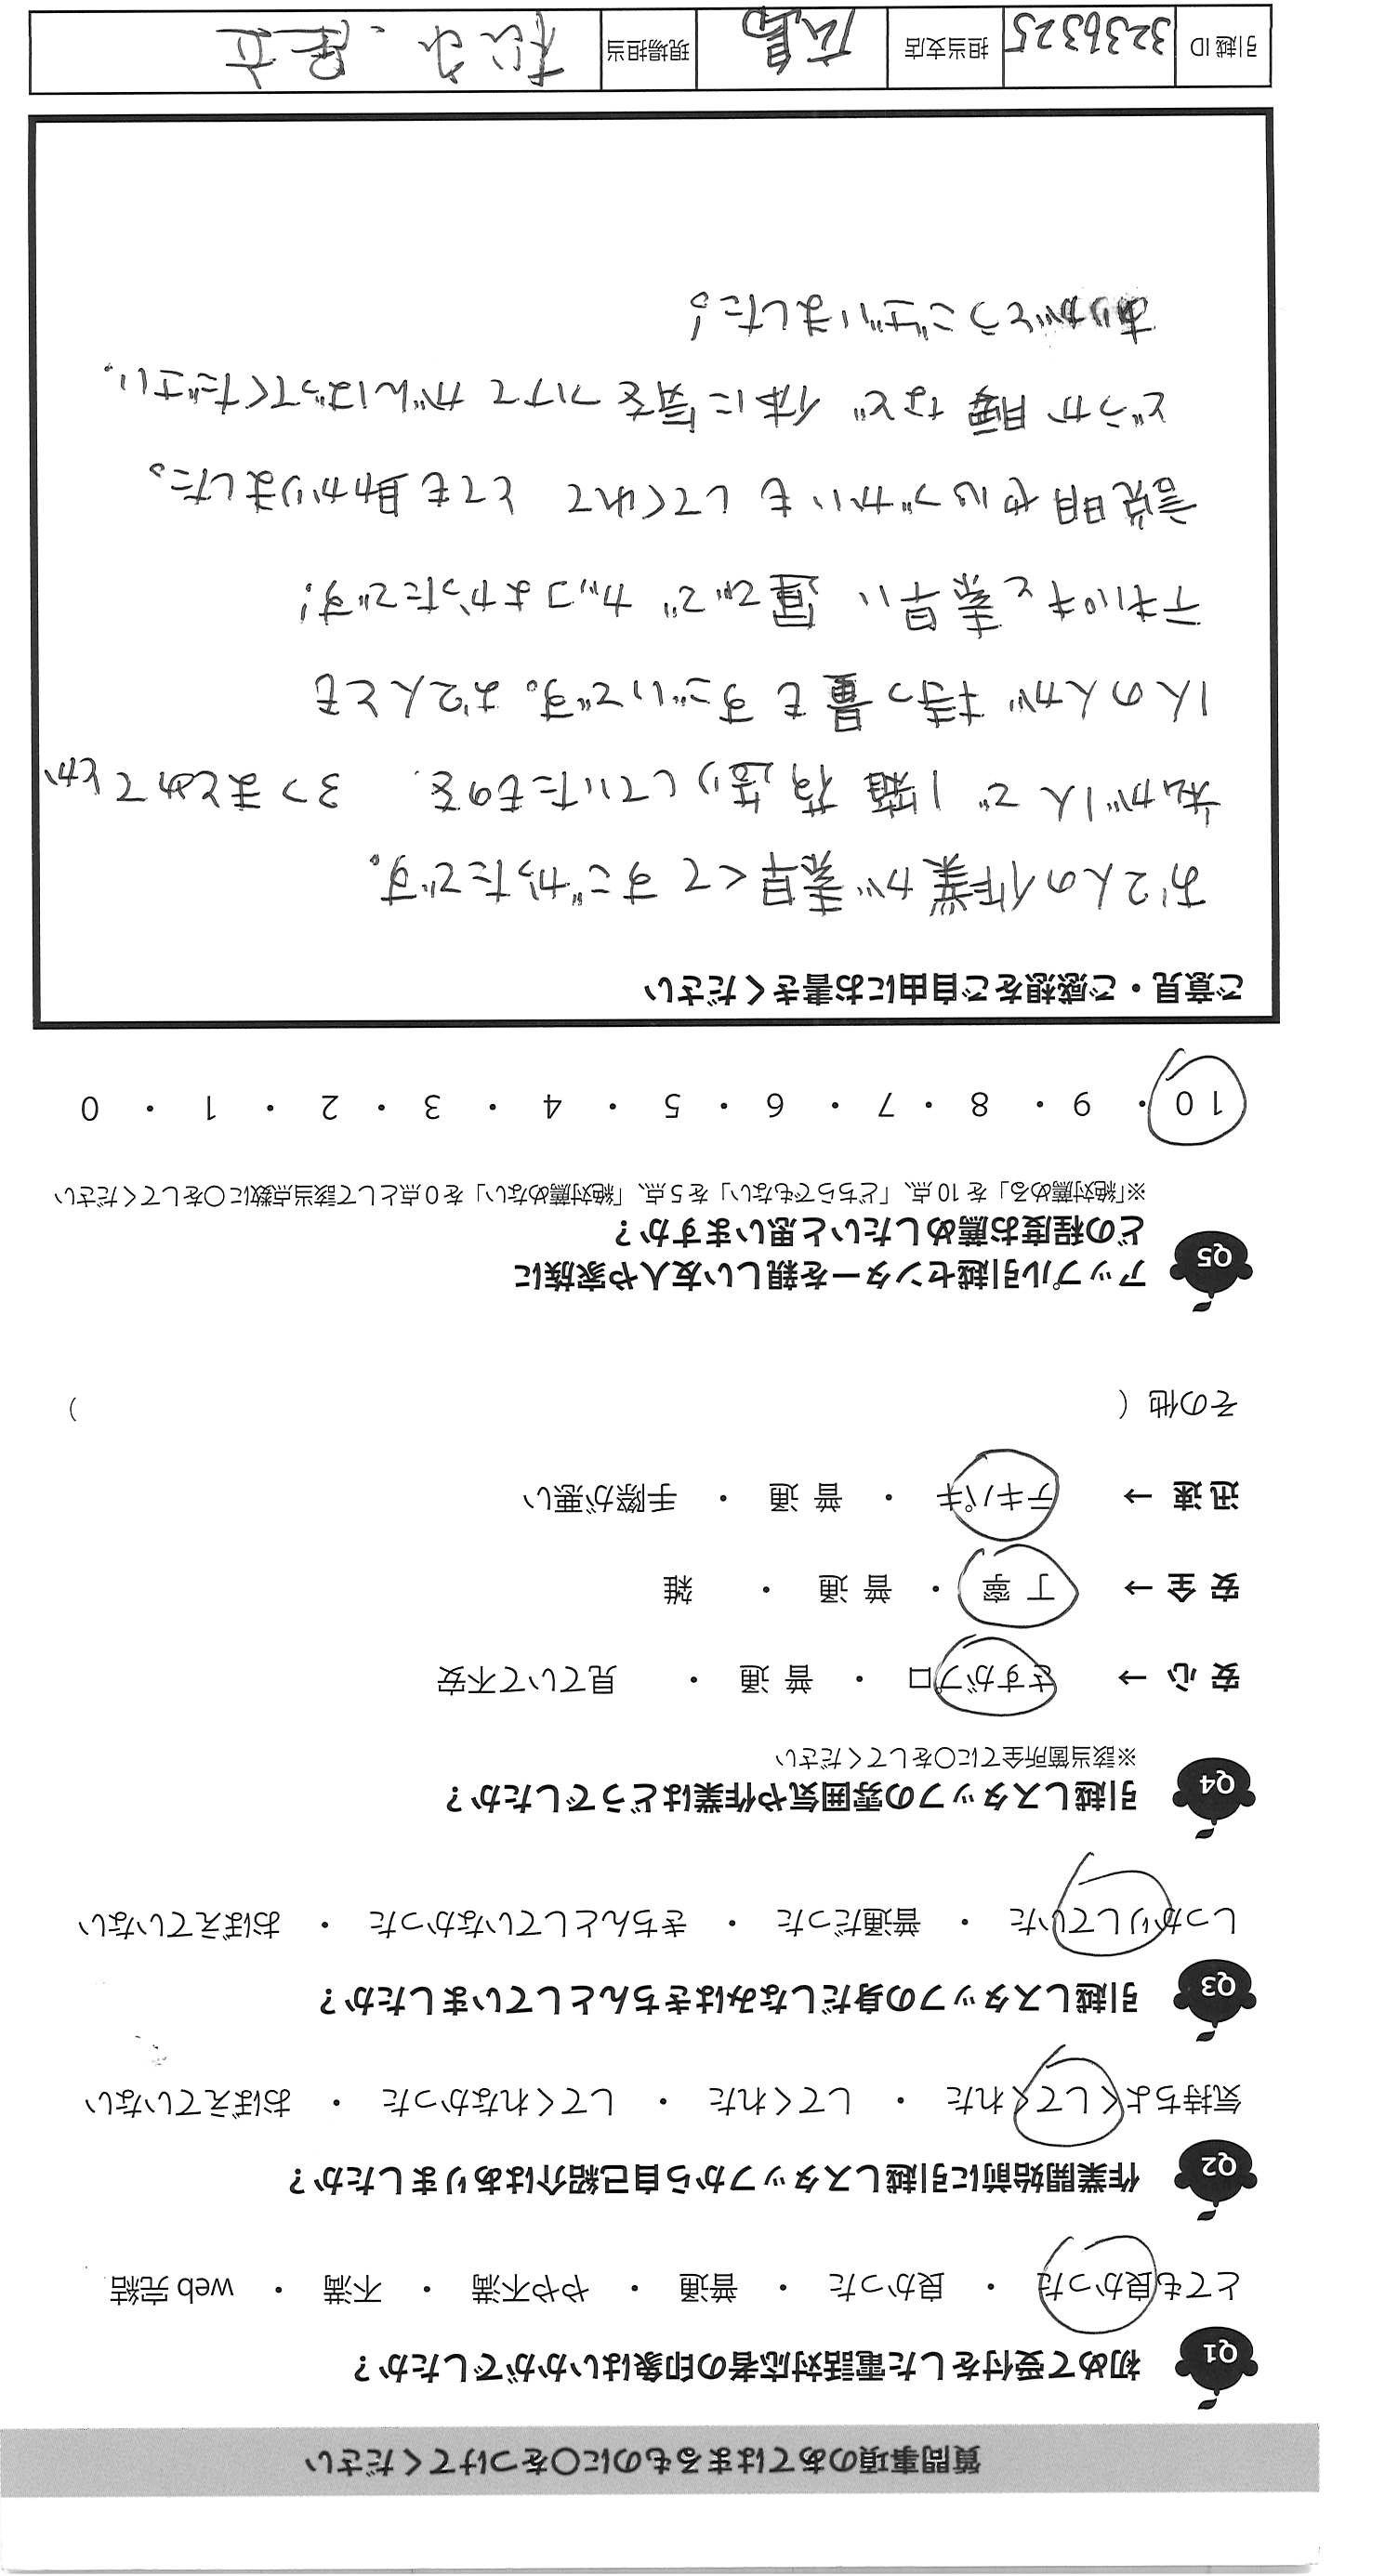 質問事項のあてはまるものに〇をつけてください
Q1 初めて受付をした電話対応者の印象はいかがでしたか？
とても良かった ・ 良かった ・ 普通 ・ やや不満 ・ 不満 ・ web 完結
Q2 作業開始前に引越しスタッフから自己紹介はありましたか？
気持ちよくしてくれた ・ してくれた ・ してくれなかった ・ おぼえていない
Q3 引越しスタッフの身だしなみはきちんとしていましたか？
しっかりしていた ・ 普通だった ・ きちんとしていなかった ・ おぼえていない
Q4 引越しスタッフの雰囲気や作業はどうでしたか？
※該当箇所全てに〇をしてください
安 心 → さすがプロ ・ 普 通 ・ 見ていて不安
安 全 → 丁 寧 ・ 普 通 ・ 雑
迅 速 → テキパキ ・ 普 通 ・ 手際が悪い
その他（ ）
Q5 アップル引越センターを親しい友人や家族に
どの程度お薦めしたいと思いますか？
※「絶対薦める」を 10 点、「どちらでもない」を 5 点、「絶対薦めない」を 0 点として該当点数に〇をしてください
10 ・ 9 ・ 8 ・ 7 ・ 6 ・ 5 ・ 4 ・ 3 ・ 2 ・ 1 ・ 0
ご意見・ご感想をご自由にお書きください
お2人の作業が素早くてすごかったです。
私が1人で1箱 荷造りしていたものを、3つまとめてとか
1人の人が持つ量もすごいです。お2人とも
テキパキと素早い 運びで カッコよかったです!
説明や心づかいもしてくれて とても助かりました。
どうか腰など 体に気をつけて がんばってください。
ありがとうございました!
引越 ID 3236325 担当支店 広島 現場担当 松永・